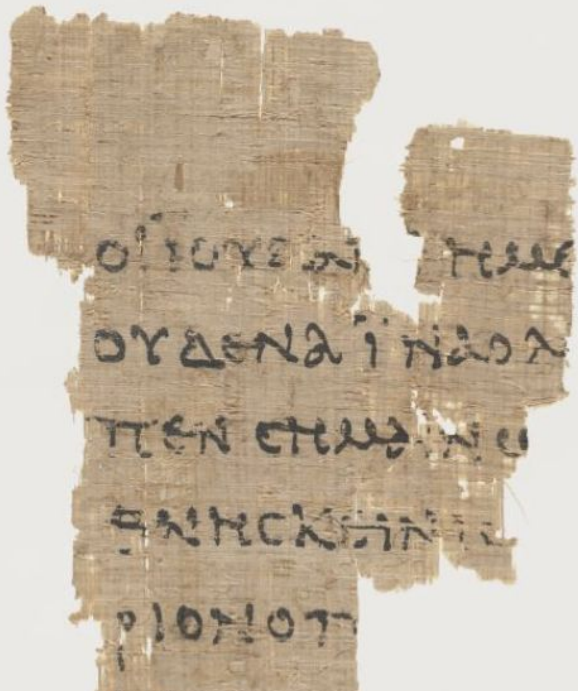 ΟΙ ΙΟΥΔΑΙ ΗΜΕ
ΟΥΔΕΝΑ ΪΝΑ Ο Λ
ΠΕΝ CΗΜΑΙΝΩ
ΘΝΗCΚΕΙΝ Ι
ΡΙΟΝ Ο Π